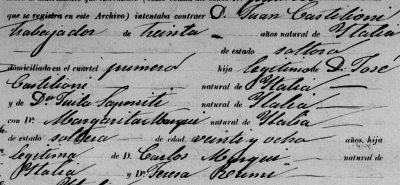 que se registra en este Archivo) intentaba contraer D. Juan Castilioni
trabajador de treinta años natural de Italia
de estado soltero
domiciliado en el cuartel primero hijo legitimo de D. José
Castilioni natural de Italia
y de Da natural de Italia
con Da. Margarita natural de Italia
de estado soltera de edad veinte y ocho años, hija
legitima de D. Carlos natural de
Italia y Da Teresa